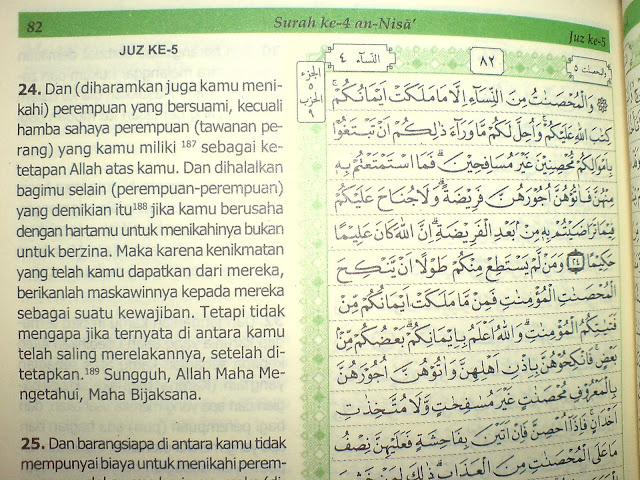 82
Surah ke-4 an-Nisā'
Juz ke-5
JUZ KE-5
24. Dan (diharamkan juga kamu meni-
kahi) perempuan yang bersuami, kecuali
hamba sahaya perempuan (tawanan pe-
rang) yang kamu miliki 187 sebagai ke-
tetapan Allah atas kamu. Dan dihalalkan
bagimu selain (perempuan-perempuan)
yang demikian itu188 jika kamu berusaha
dengan hartamu untuk menikahinya bukan
untuk berzina. Maka karena kenikmatan
yang telah kamu dapatkan dari mereka,
berikanlah maskawinnya kepada mereka
sebagai suatu kewajiban. Tetapi tidak
mengapa jika ternyata di antara kamu
telah saling merelakannya, setelah di-
tetapkan.189 Sungguh, Allah Maha Me-
ngetahui, Maha Bijaksana.
25. Dan barangsiapa di antara kamu tidak
mempunyai biaya untuk menikahi perem-
النساء ٤
٨٢
والمحصنت ٥
الجزء
٥
الحزب
٩
۞ وَالْمُحْصَنٰتُ مِنَ النِّسَاۤءِ اِلَّا مَا مَلَكَتْ اَيْمَانُكُمْ ۚ
كِتٰبَ اللّٰهِ عَلَيْكُمْ ۚ وَاُحِلَّ لَكُمْ مَّا وَرَاۤءَ ذٰلِكُمْ اَنْ تَبْتَغُوْا
بِاَمْوَالِكُمْ مُّحْصِنِيْنَ غَيْرَ مُسٰفِحِيْنَ ۗ فَمَا اسْتَمْتَعْتُمْ بِهٖ
مِنْهُنَّ فَاٰتُوْهُنَّ اُجُوْرَهُنَّ فَرِيْضَةً ۗ وَلَا جُنَاحَ عَلَيْكُمْ
فِيْمَا تَرَاضَيْتُمْ بِهٖ مِنْۢ بَعْدِ الْفَرِيْضَةِ ۗ اِنَّ اللّٰهَ كَانَ عَلِيْمًا
حَكِيْمًا ٢٤ وَمَنْ لَّمْ يَسْتَطِعْ مِنْكُمْ طَوْلًا اَنْ يَّنْكِحَ
الْمُحْصَنٰتِ الْمُؤْمِنٰتِ فَمِنْ مَّا مَلَكَتْ اَيْمَانُكُمْ مِّنْ
فَتَيٰتِكُمُ الْمُؤْمِنٰتِ ۗ وَاللّٰهُ اَعْلَمُ بِاِيْمَانِكُمْ ۗ بَعْضُكُمْ مِّنْۢ
بَعْضٍ ۚ فَانْكِحُوْهُنَّ بِاِذْنِ اَهْلِهِنَّ وَاٰتُوْهُنَّ اُجُوْرَهُنَّ
بِالْمَعْرُوْفِ مُحْصَنٰتٍ غَيْرَ مُسٰفِحٰتٍ وَّلَا مُتَّخِذٰتِ
اَخْدَانٍ ۚ فَاِذَآ اُحْصِنَّ فَاِنْ اَتَيْنَ بِفَاحِشَةٍ فَعَلَيْهِنَّ نِصْفُ
مَا عَلَى الْمُحْصَنٰتِ مِنَ الْعَذَابِ ۗ ذٰلِكَ لِمَنْ خَشِيَ